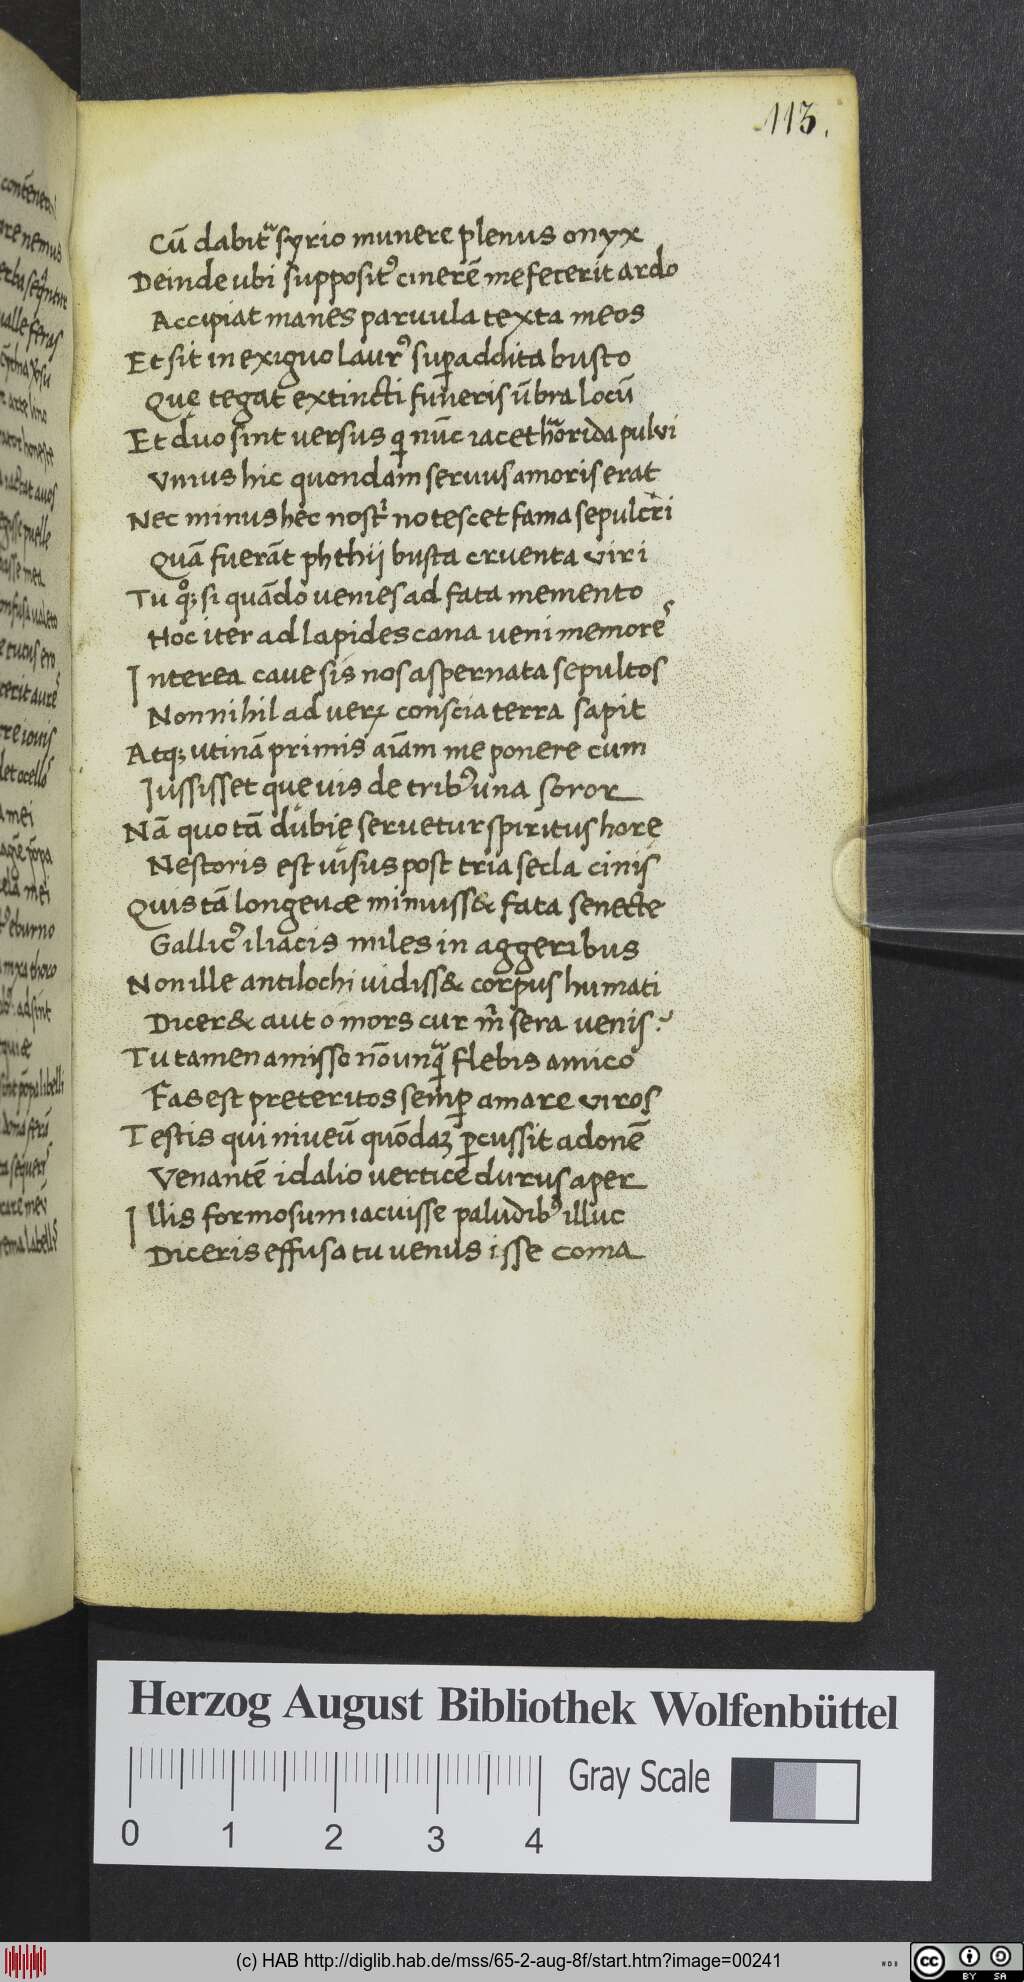 113.
Cū dabitᷓ syrio munere plenus onyx
Deinde ubi supposit⁹ cinerē me fecerit ardo
Accipiat manes paruula texta meos
Et sit in exiguo laur⁹ suꝑaddita busto
Quę tegat extincti funeris ūbra locū
Et duo sint uersus q nūc iacet horrida pului
Vnius hic quondam seruus amoris erat
Nec minus hęc nostⁱ notescet fama sepulcri
Quā fuerāt phthij busta cruenta viri
Tu qͦꝫ si quādo uenies ad fata memento
Hoc iter ad lapides cana veni memorēs
Interea caue sis nos aspernata sepultos
Non nihil ad verꝝ conscia terra sapit
Atqꝫ utinā primis aīam me ponere cum
Iussisset queuis de trib⁹ una soror
Nā quo tā dubię seruetur spiritus horę
Nestoris est uisus post tria secla cinis
Quis tā longeuæ minuiss& fata senecte
Gallic⁹ iliacis miles in aggeribus
Non ille antilochi uidiss& corpus humati
Dicer& aut o mors cur m̄ sera uenis?
Tu tamen amisso nōunqᷓ flebis amico
Fas est preteritos semꝑ amare viros
Testis qui niueū quōdaꝫ ꝑcussit adonē
Venantē idalio uertice durus aper
Illis formosum iacuisse paludib⁹ illuc
Diceris effusa tu uenus isse coma
Herzog August Bibliothek Wolfenbüttel
0 1 2 3 4
Gray Scale
(c) HAB http://diglib.hab.de/mss/65-2-aug-8f/start.htm?image=00241
cc BY SA